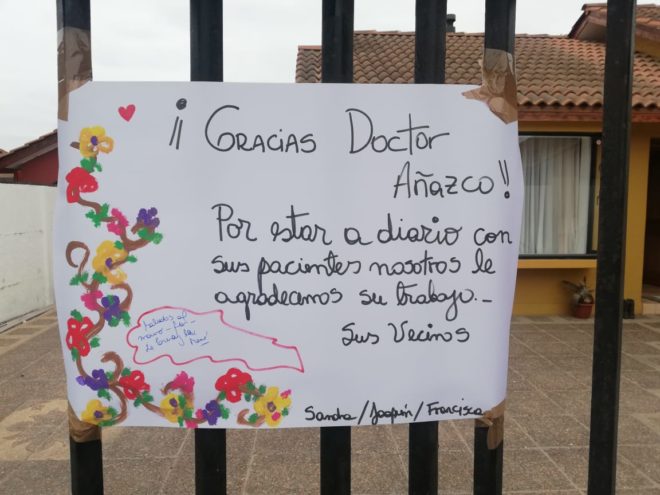 ¡¡ Gracias Doctor
Añazco!!
Por estar a diario con
sus pacientes nosotros le
agradecemos su trabajo.-
Sus Vecinos
Sandra/Joaquín/Francisca